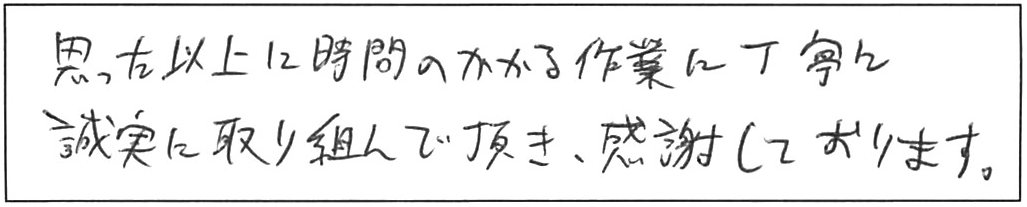 思った以上に時間のかかる作業に丁寧に
誠実に取り組んで頂き、感謝しております。